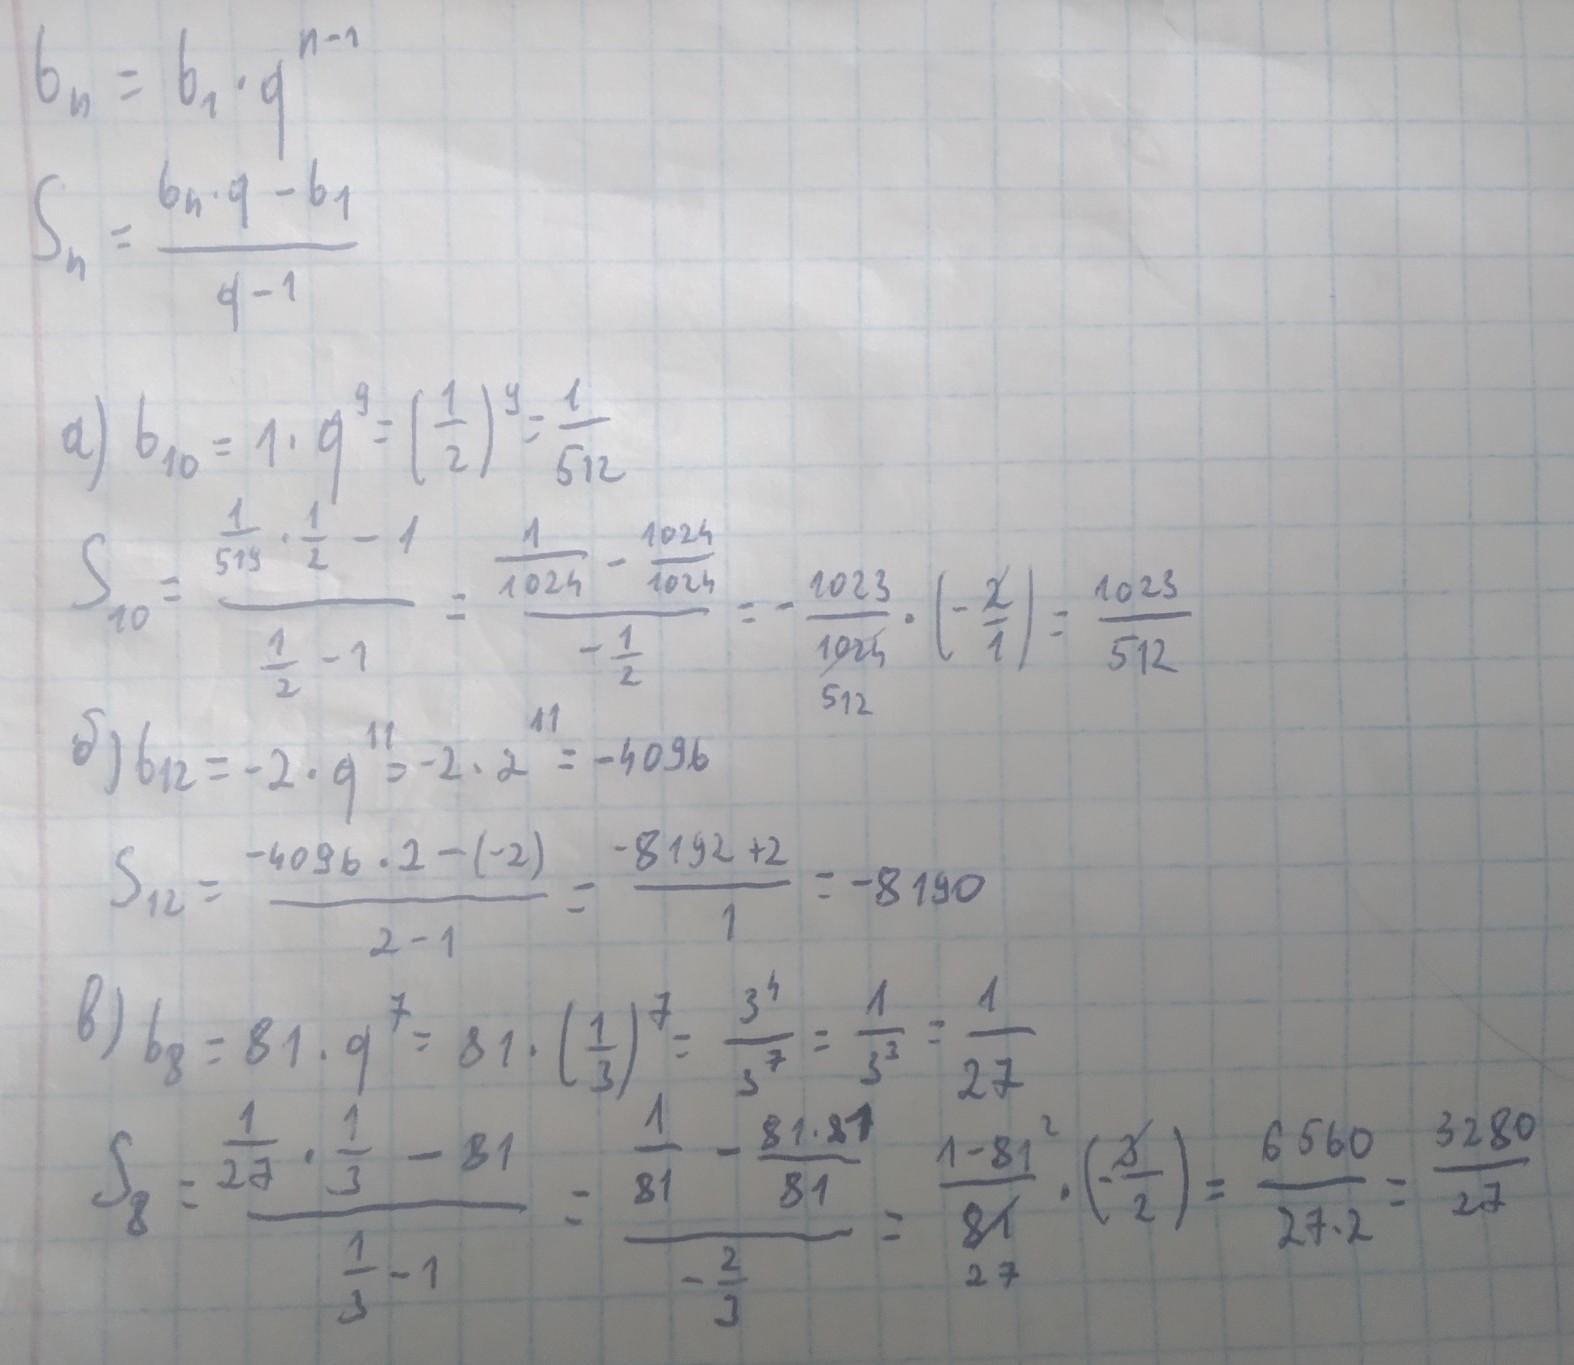 bₙ = b₁ · qⁿ⁻¹
Sₙ = (bₙ · q − b₁) / (q − 1)
а) b₁₀ = 1 · q⁹ = (1/2)⁹ = 1/512
S₁₀ = (1/512 · 1/2 − 1) / (1/2 − 1) = (1/1024 − 1024/1024) / (−1/2) = − 1023/1024 512 · (−2/1) = 1023/512
б) b₁₂ = −2 · q¹¹ = −2 · 2¹¹ = −4096
S₁₂ = (−4096 · 2 − (−2)) / (2 − 1) = (−8192 + 2) / 1 = −8190
в) b₈ = 81 · q⁷ = 81 · (1/3)⁷ = 3⁴/3⁷ = 1/3³ = 1/27
S₈ = (1/27 · 1/3 − 81) / (1/3 − 1) = (1/81 − 81·81/81) / (−2/3) = (1 − 81²)/81 27 · (−3/2) = 6560/(27·2) = 3280/27